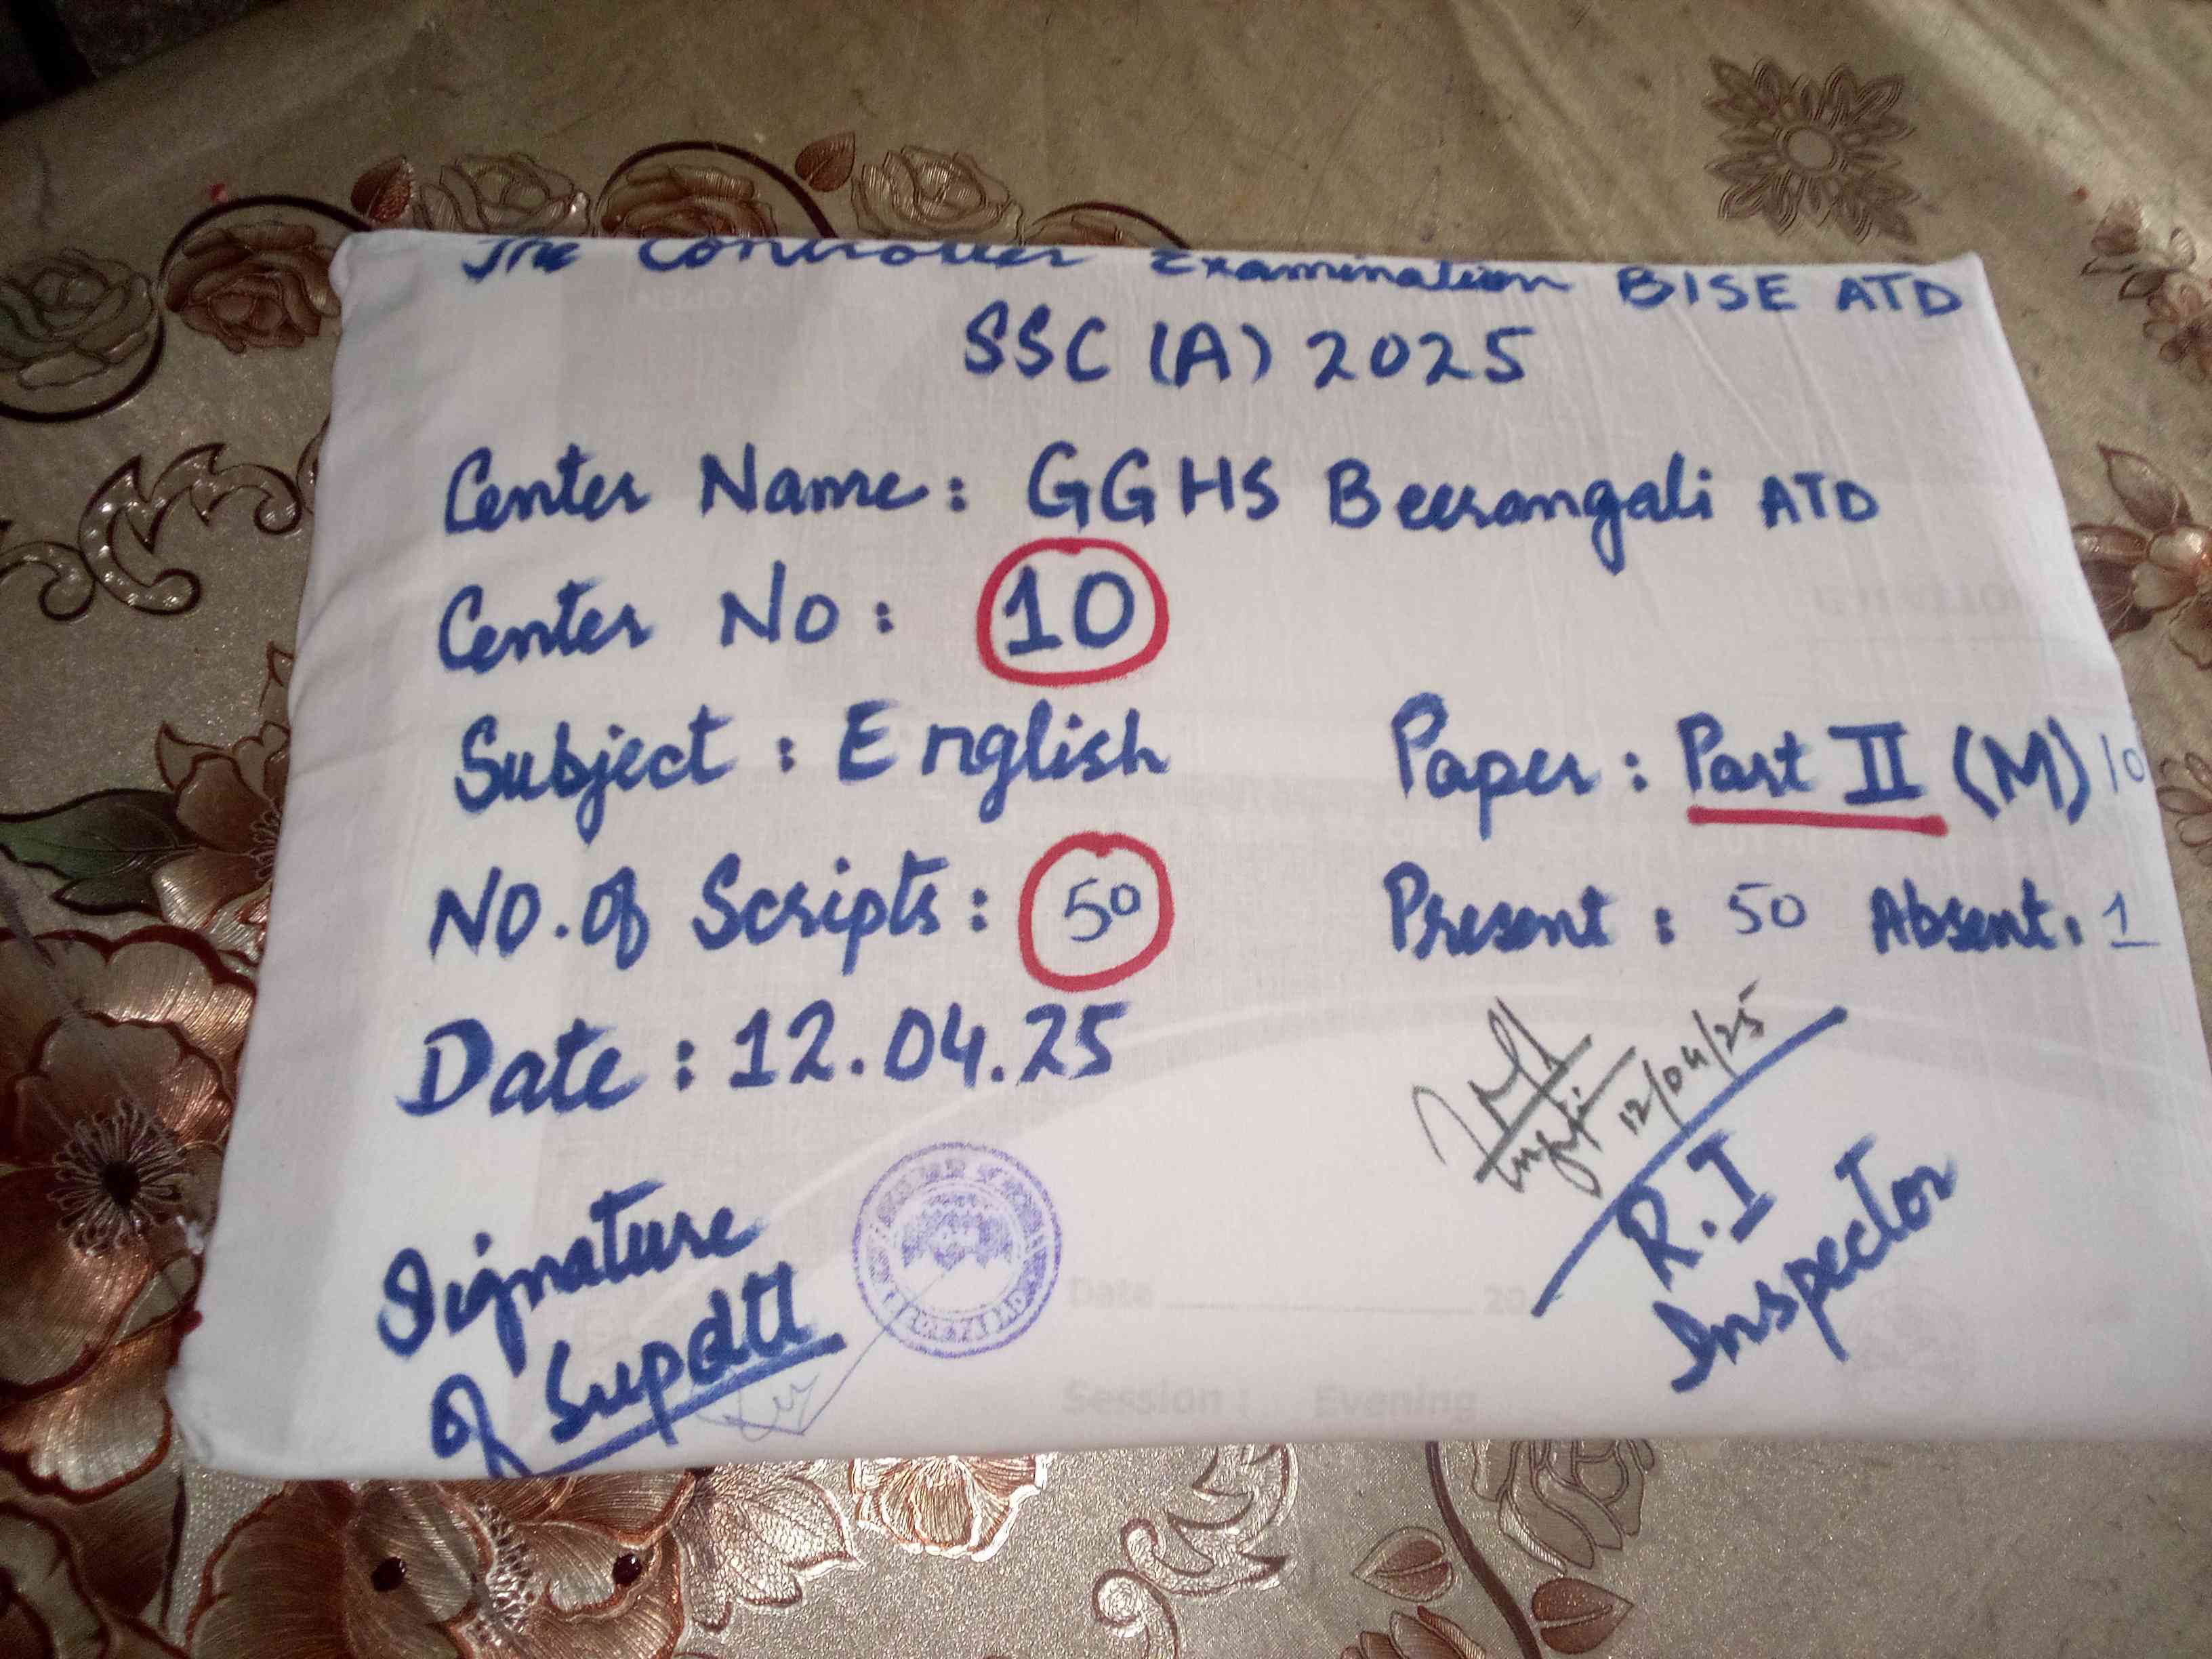 The Controller Examination BISE ATD
SSC (A) 2025
Center Name: GGHS Beerangali ATD
Center No: 10
Subject: English Paper: Part II (M) 10
NO. of Scripts: 50 Present: 50 Absent: 1
Date: 12.04.25
12/04/25
R.I
Inspector
Signature
of Supdtt
Date 20
Session: Evening